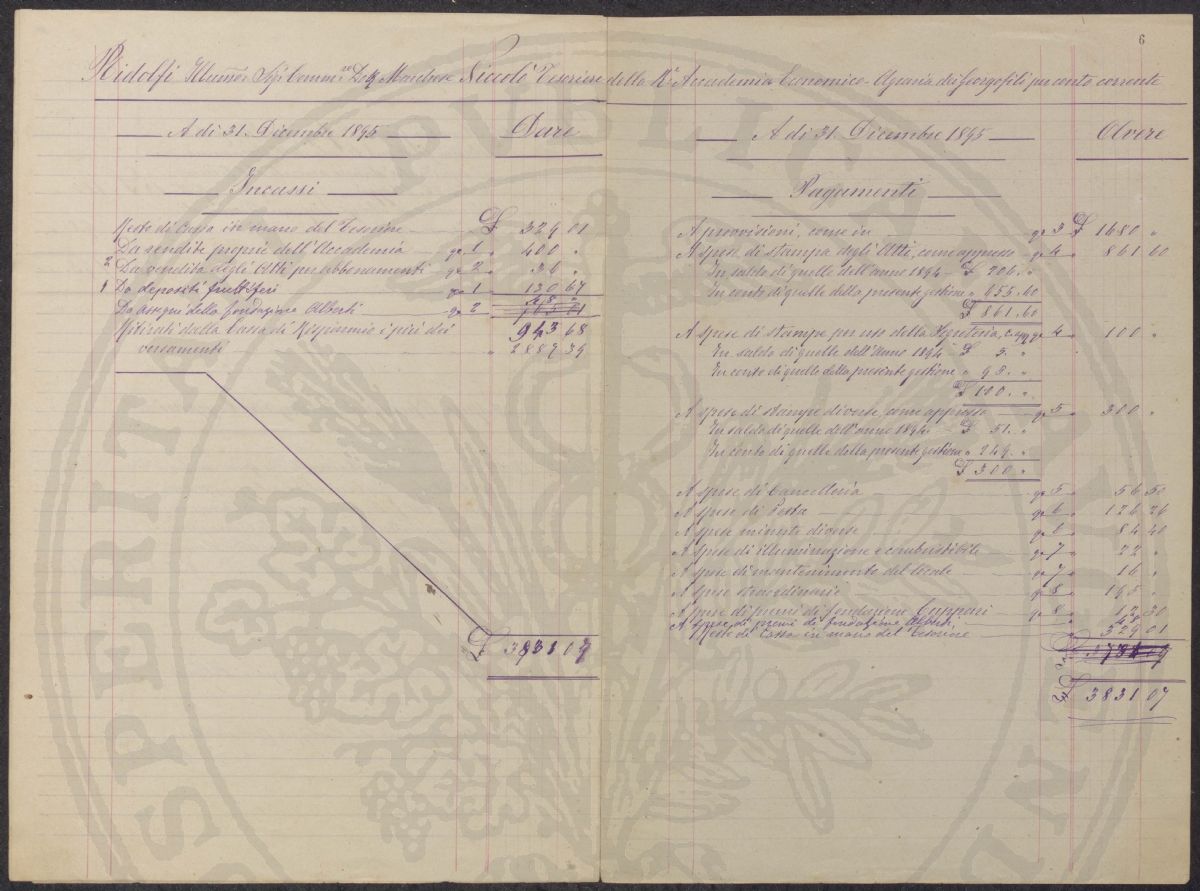 6
Ridolfi Illumo Sigr Commre Marchese Niccolò Tesoriere della Ra Accademia Economico-Agraria dei Georgofili per conto corrente
A dì 31. Dicembre 1895 Dare
Incassi
Resto di Cassa in mano del Tesoriere £ 329 01
Da rendite proprie dell'Accademia 1 400 "
2 Da vendita degli Atti per abbonamenti 2 36 "
1 Da depositi fruttiferi 1 130 67
Da assegni della fondazione Alberti 2 48 "
943 68
Ritirati dalla Cassa di Risparmio i piri dei
versamenti " 2887 39
£ 3831 07
A dì 31. Dicembre 1895 Avere
Pagamenti
A provvisioni, come in 3 £ 1680 "
A spese di stampa degli Atti, come appresso 4 " 861 60
In saldo di quelle dell'anno 1894 £ 206. "
In conto di quelle della presente gestione " 655. 60
£ 861. 60
A spese di stampe per uso della Segreteria, 4 " 100 "
In saldo di quelle dell'Anno 1894 £ 5. "
In conto di quelle della presente gestione " 95. "
£ 100. "
A spese di stampe diverse, come appresso 5 " 300 "
In saldo di quelle dell'anno 1894 £ 51. "
In conto di quelle della presente gestione " 249. "
£ 300 "
A spese di Cancelleria 5 " 56 50
A spese di Posta 6 " 126 26
A spese minute diverse 6 " 84 40
A spese di illuminazione e combustibile 7 " 22 "
A spese di mantenimento del locale 7 " 16 "
A spese straordinarie 8 " 195 "
A spese di premi di fondazione Cuppari 8 " 12 30
A spese di premi di fondazione Alberti 48
Resto di Cassa in mano del Tesoriere " 329 01
£ 3831 07